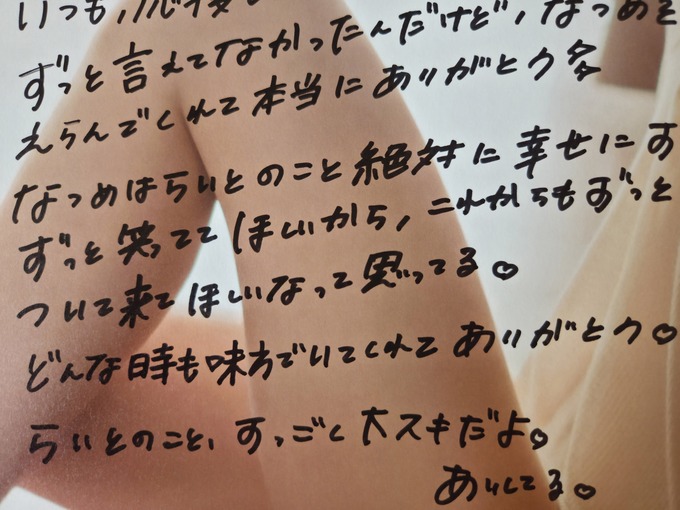 ずっと言えてなかったんだけど、なつめを
えらんでくれて本当にありがとう
なつめはらいとのこと絶対に幸せにす
ずっと笑っててほしいから、これからもずっと
ついて来てほしいなって思ってる♡
どんな時も味方でいてくれてありがとう♡
らいとのこと、すっごく大スキだよ♡
あいしてる♡